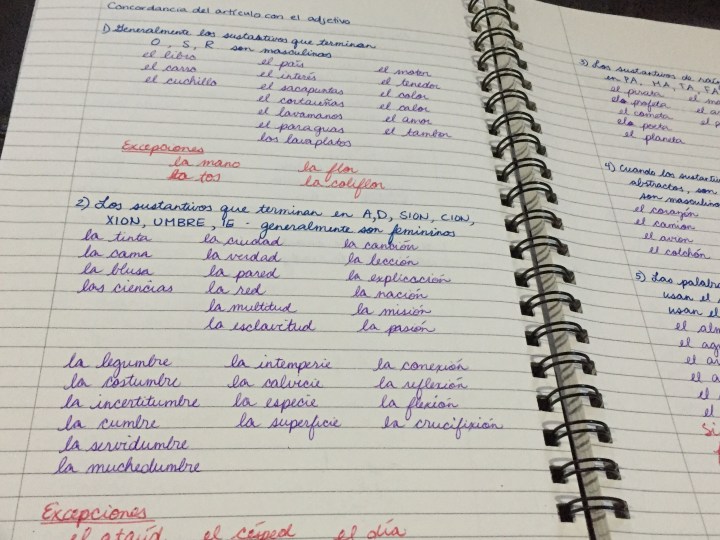 Concordancia del artículo con el adjetivo
1) Generalmente los sustantivos que terminan
O, S, R son masculinos
el libro el país el motor
el carro el interés el tenedor
el cuchillo el sacapuntas el color
el cortauñas el calor
el lavamanos el amor
el paraguas el tambor
los lavaplatos
Excepciones
la mano la flor
la tos la coliflor
2) Los sustantivos que terminan en A, D, SION, CION,
XION, UMBRE, IE - generalmente son femininos
la tinta la ciudad la canción
la cama la verdad la lección
la blusa la pared la explicación
las ciencias la red la nación
la multitud la misión
la esclavitud la pasión
la legumbre la intemperie la conexión
la costumbre la calvicie la reflexión
la incertitumbre la especie la flexión
la cumbre la superficie la crucifixión
la servidumbre
la muchedumbre
Excepciones
el ataúd el césped el día
3) Los sustantivos de
en PA, MA, TA,
el pirata
el profeta
el cometa
el poeta
el planeta
4) Cuando los
abstractos, son
son masculinos
el corazón
el camión
el avion
el colchón
5) Las
usan el
usan el
el
el
el
el
el
el
Si